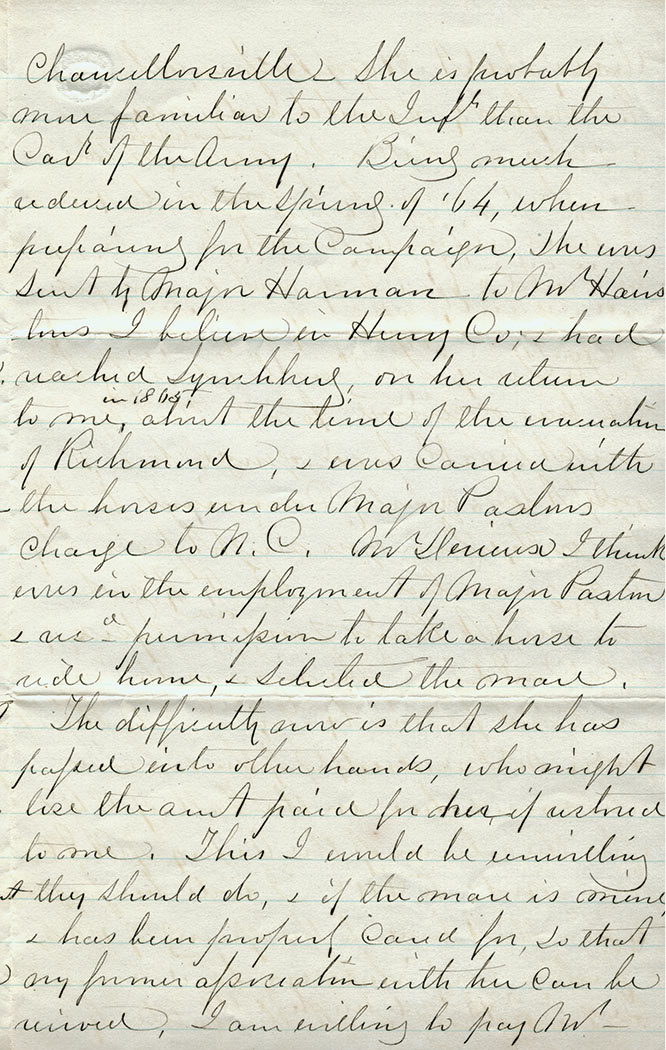 Chancellorsville – She is probably
more familiar to the Infy than the
Cavy of the Army. Being much
reduced in the spring of '64, when
preparing for the Campaign, she was
sent by Major Harman to Mr Hairs
tons I believe in Henry Co; & had
reached Lynchburg, on her return
to me, in 1865 about the time of the evacuation
of Richmond, & was carried with
the horses under Major Paxtons
charge to N. C. Mr I think
was in the employment of Major Paxton
& recd permission to take a horse to
ride home, & selected the mare.
The difficulty now is that she has
passed into other hands, who might
lose the amt paid for her, if restored
to me. This I would be unwilling
they should do, & if the mare is mine,
& has been properly cared for, so that
my former association with her can be
revived, I am willing to pay Mr –